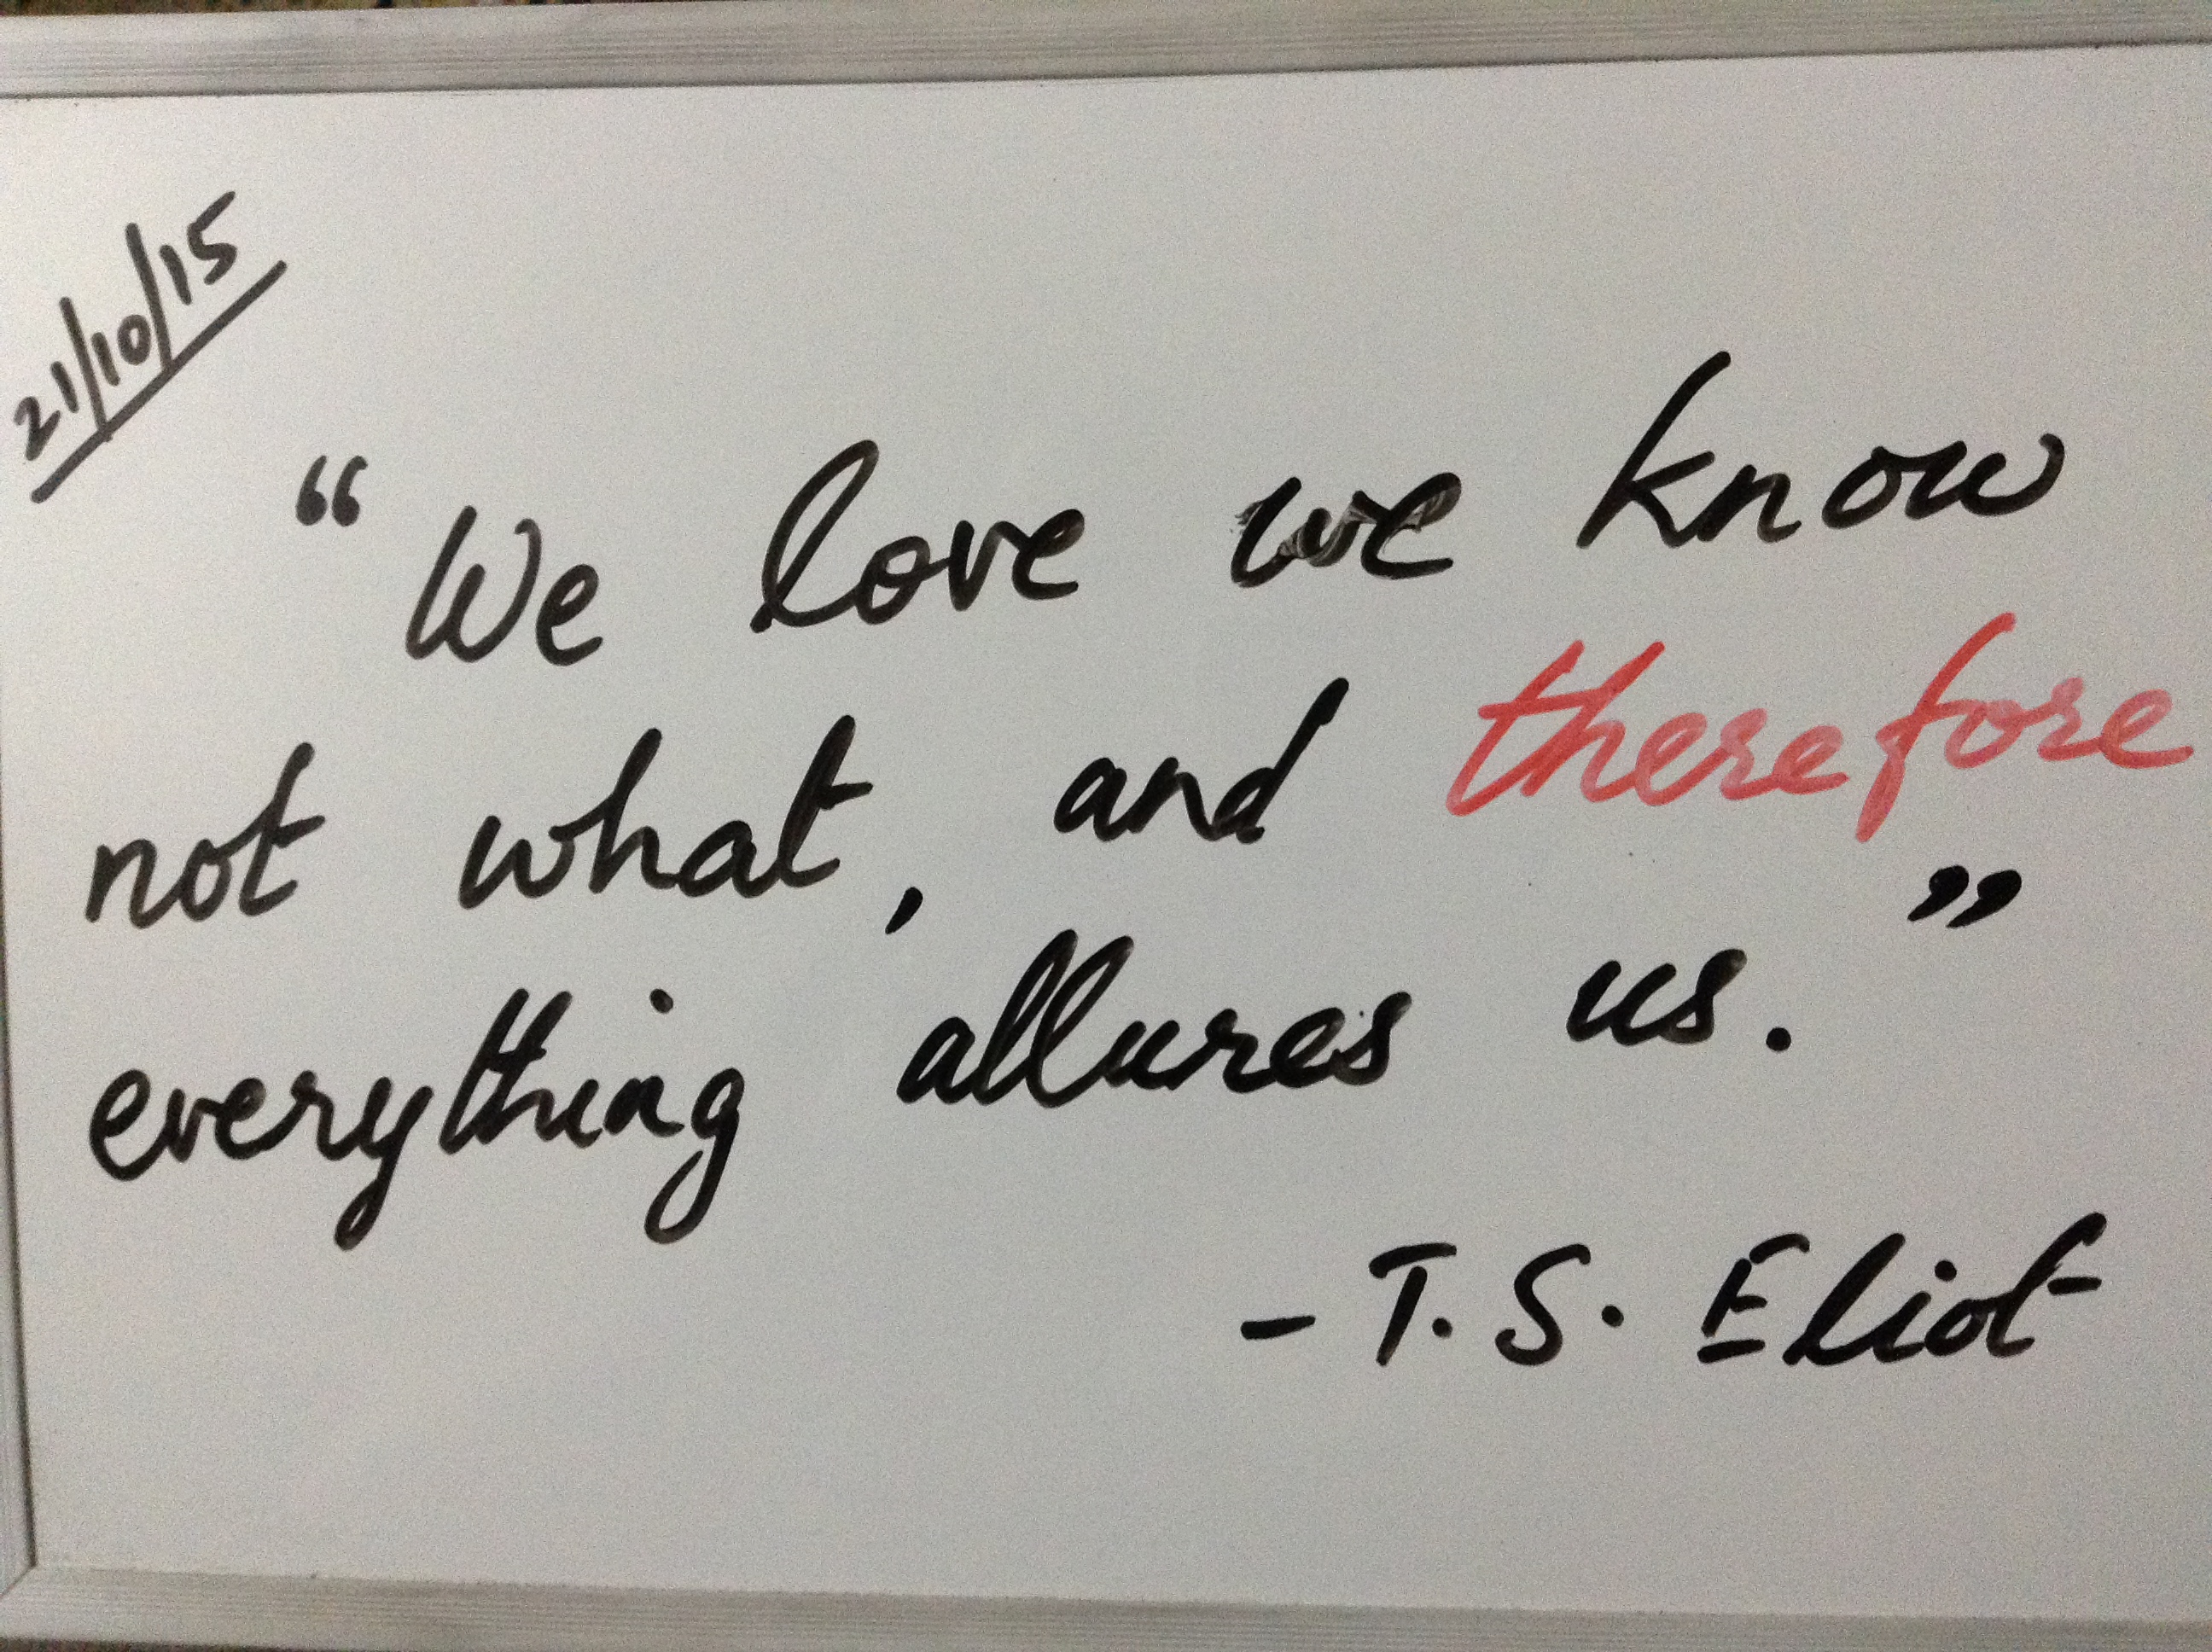 21/10/15
“We love we know
not what, and therefore
everything allures us.”
- T. S. Eliot